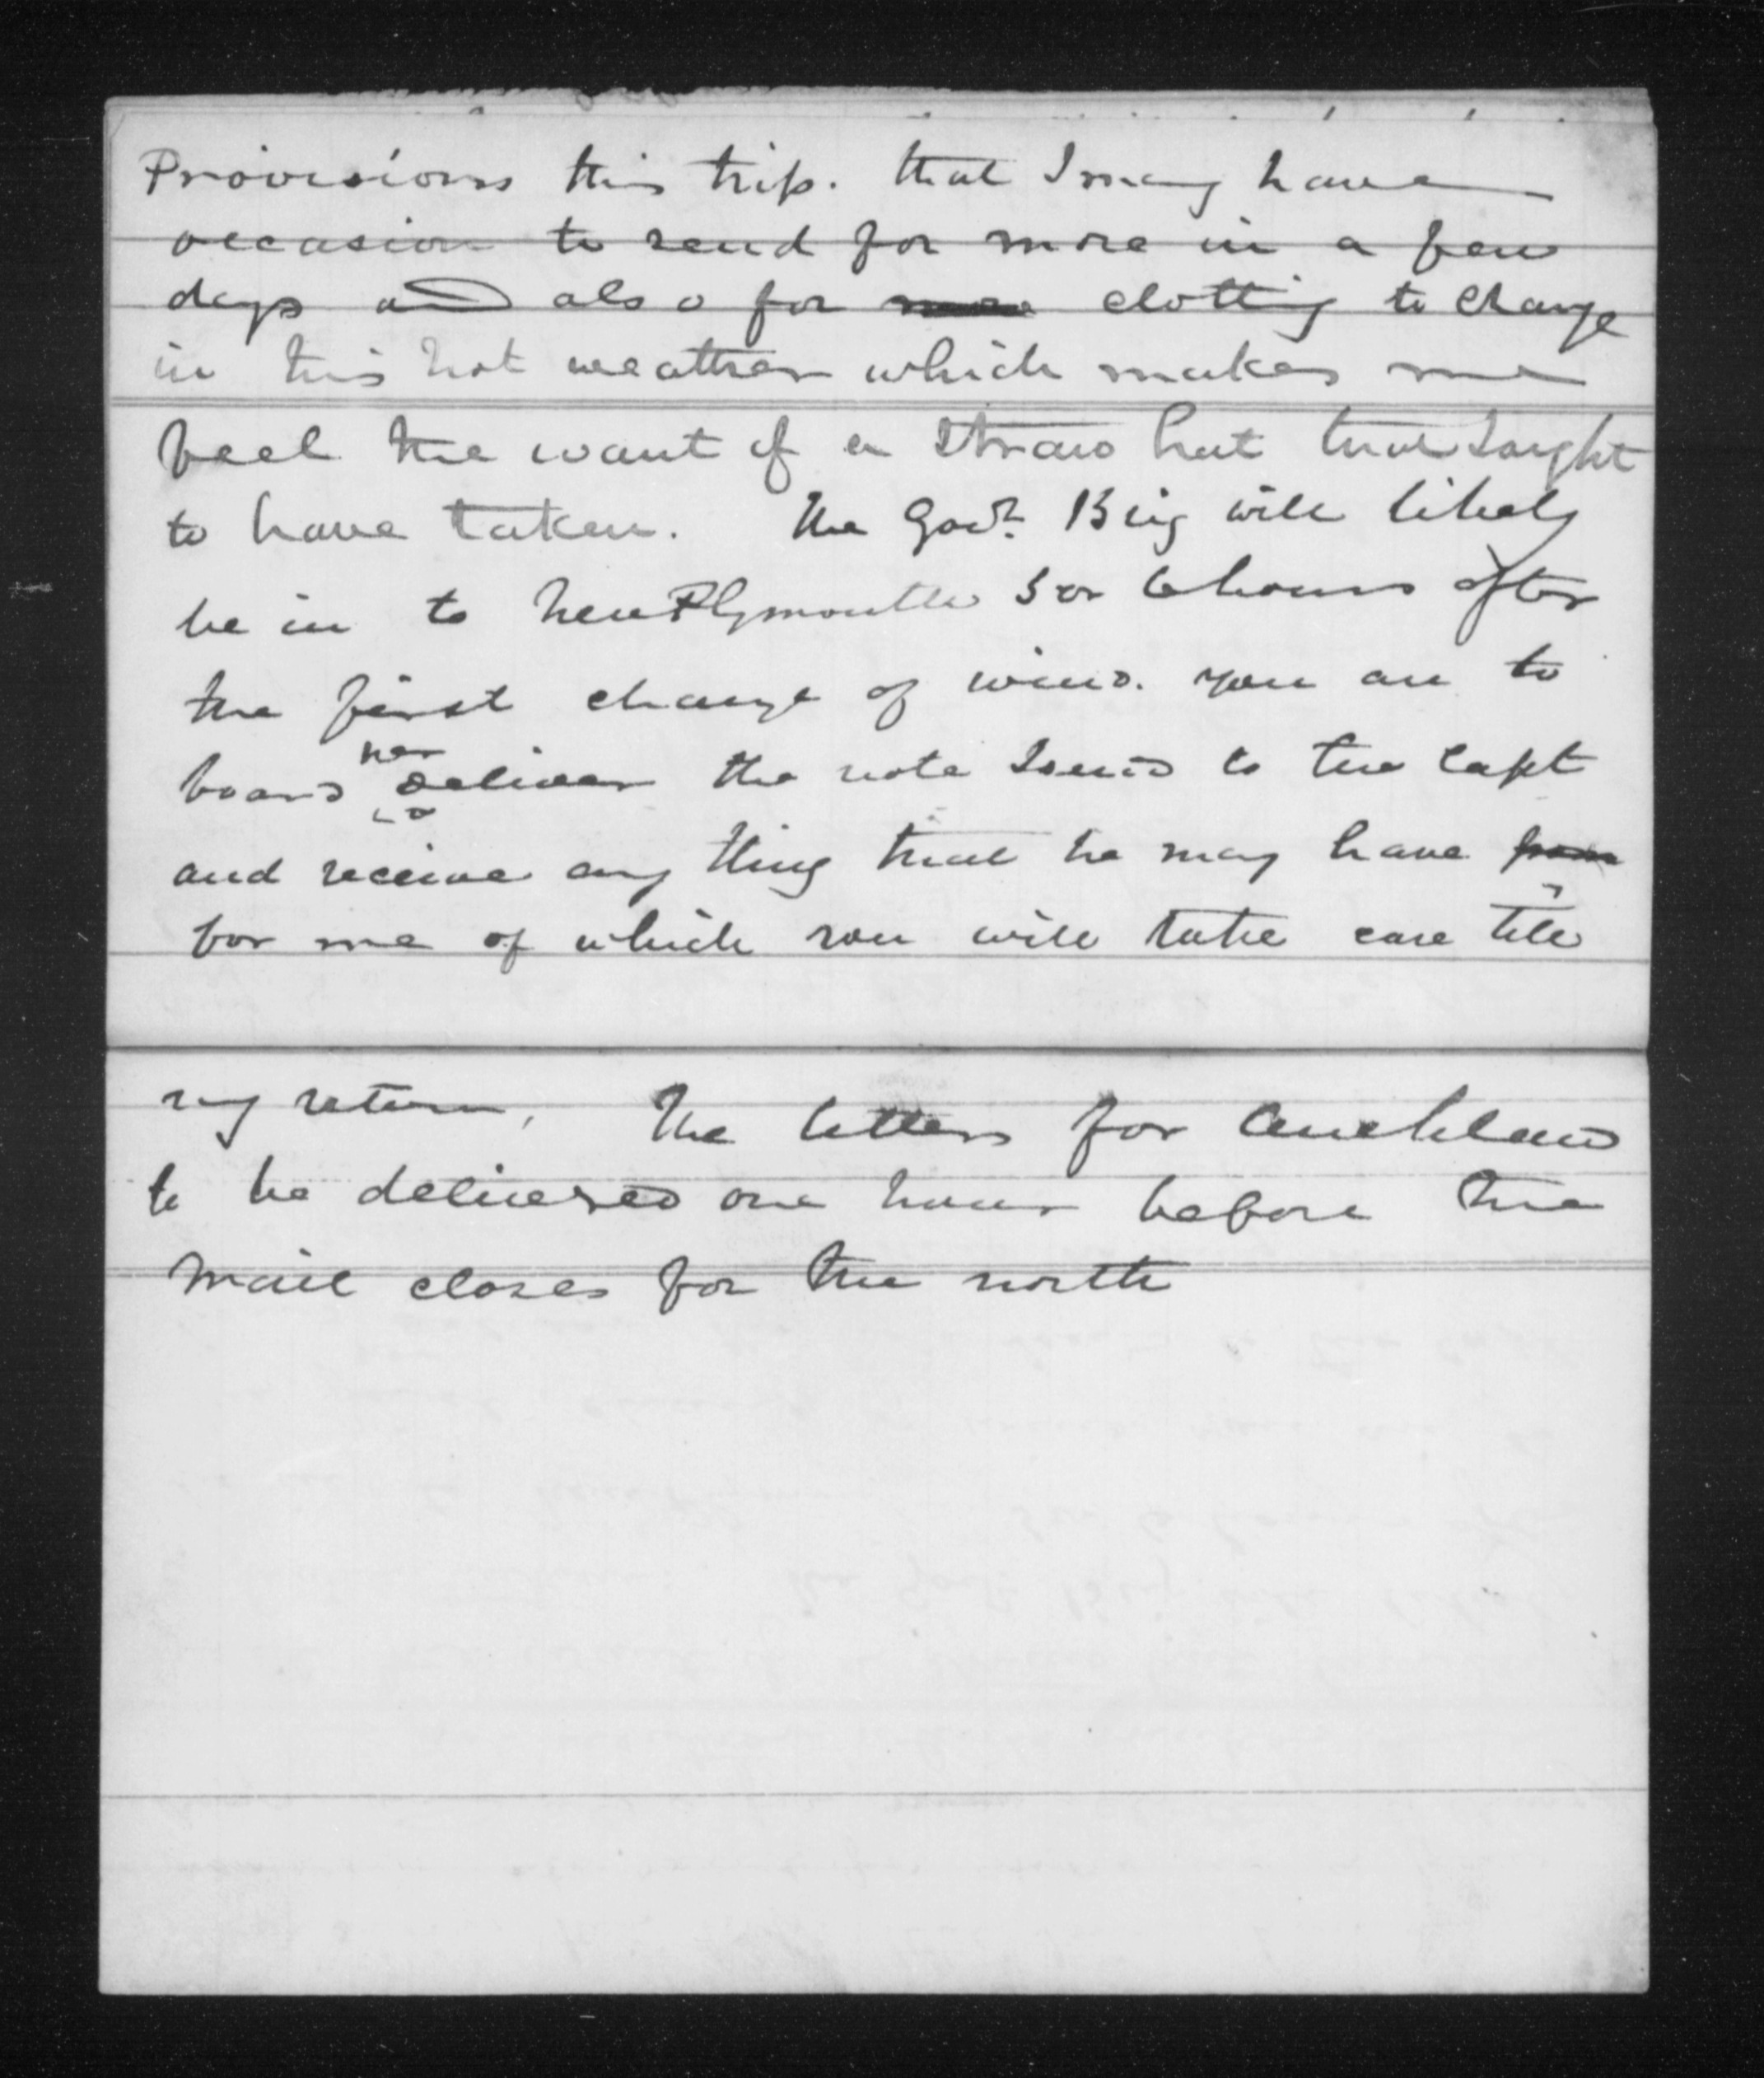 Provisions this trip. that I may have
occasion to send for more in a few
days and also for more clothing to change
in this hot weather which makes me
feel the want of a straw hat that I ought
to have taken. The Govt Brig will likely
be in to New Plymouth 5 or 6 hours after
the first change of wind. you are to
board her deliver the note I send to the Capt
and receive any thing that he may have from
for me of which you will take care till
my return, The letters for Auckland
to be delivered one hour before the
mail closes for the north